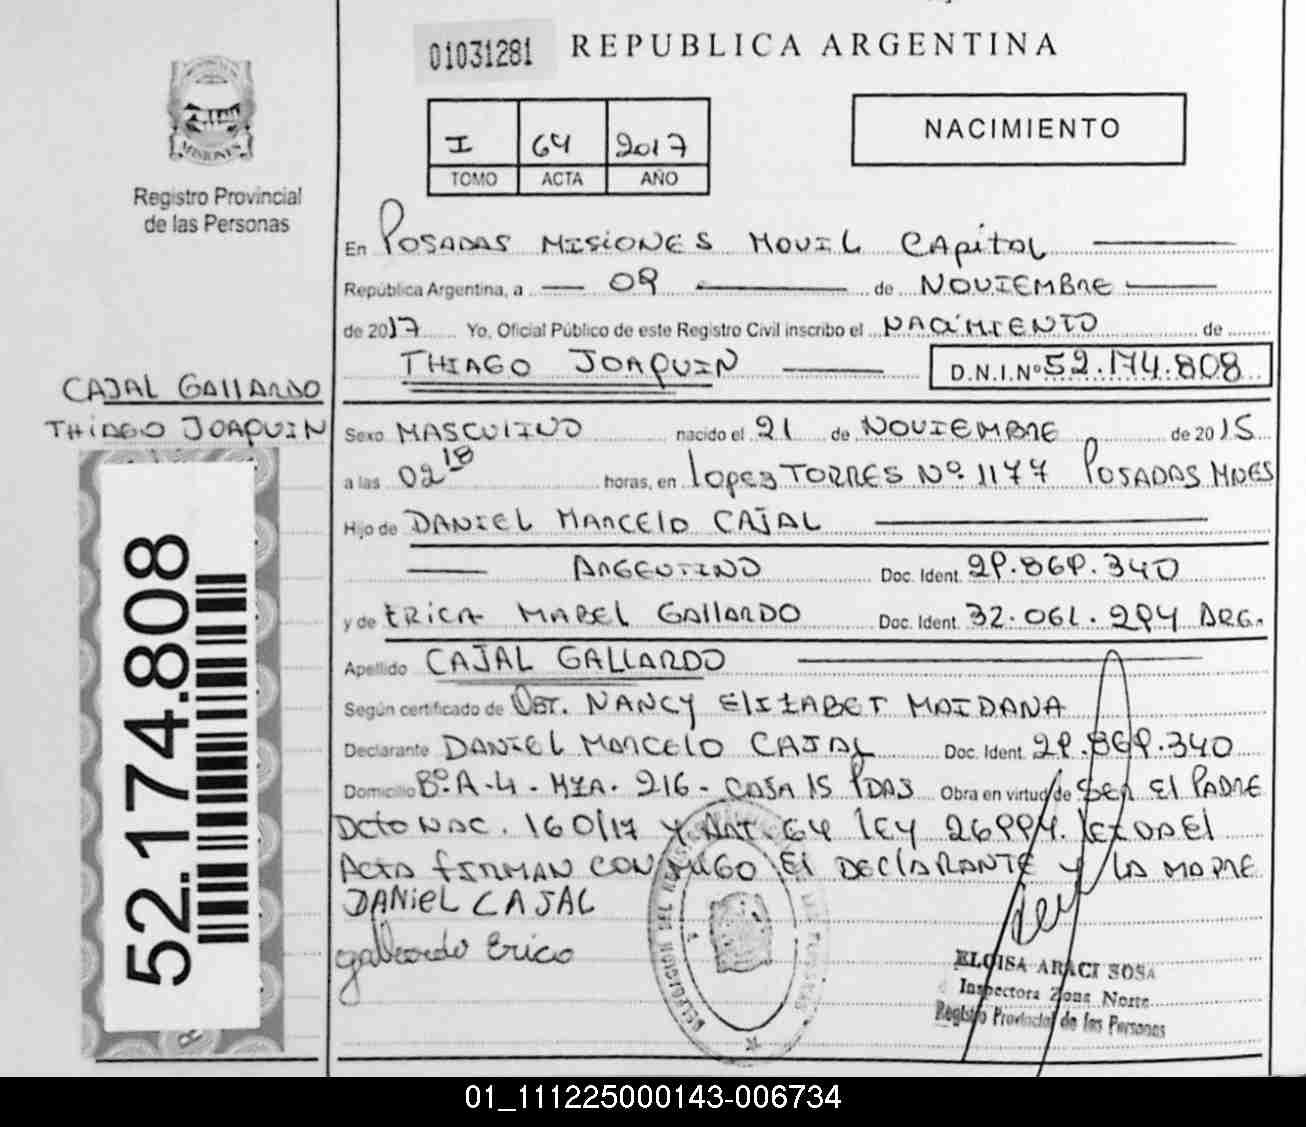 01031281 REPUBLICA ARGENTINA
I 64 2017
TOMO ACTA AÑO
NACIMIENTO
MISIONES
Registro Provincial
de las Personas
En POSADAS MISIONES MOVIL CAPITAL
República Argentina, a 09 de NOVIEMBRE
de 2017 Yo, Oficial Público de este Registro Civil inscribo el NACIMIENTO de
THIAGO JOAQUIN D.N.I.Nº 52.174.808
CAJAL GALLARDO
THIAGO JOAQUIN
Sexo MASCULINO nacido el 21 de NOVIEMBRE de 2015
a las 02 18 horas, en LOPEZ TORRES Nº 1177 POSADAS MNES
Hijo de DANIEL MARCELO CAJAL
ARGENTINO Doc. Ident. 29.869.340
y de ERICA MABEL GALLARDO Doc. Ident. 32.061.294 ARG.
Apellido CAJAL GALLARDO
Según certificado de OBT. NANCY ELIZABET MAIDANA
Declarante DANIEL MARCELO CAJAL Doc. Ident. 29.869.340
Domicilio Bº A-4 - MZA. 216 - CASA 15 PDAS Obra en virtud de SER EL PADRE
DCTO NAC. 160/17 Y ART. 64 LEY 26994. LEIDA EL
ACTA FIRMAN CONMIGO EL DECLARANTE Y LA MADRE
DANIEL CAJAL
gallardo Erica
52.174.808
ELOISA ARACI SOSA
Inspectora Zona Norte
Registro Provincial de las Personas
01_111225000143-006734